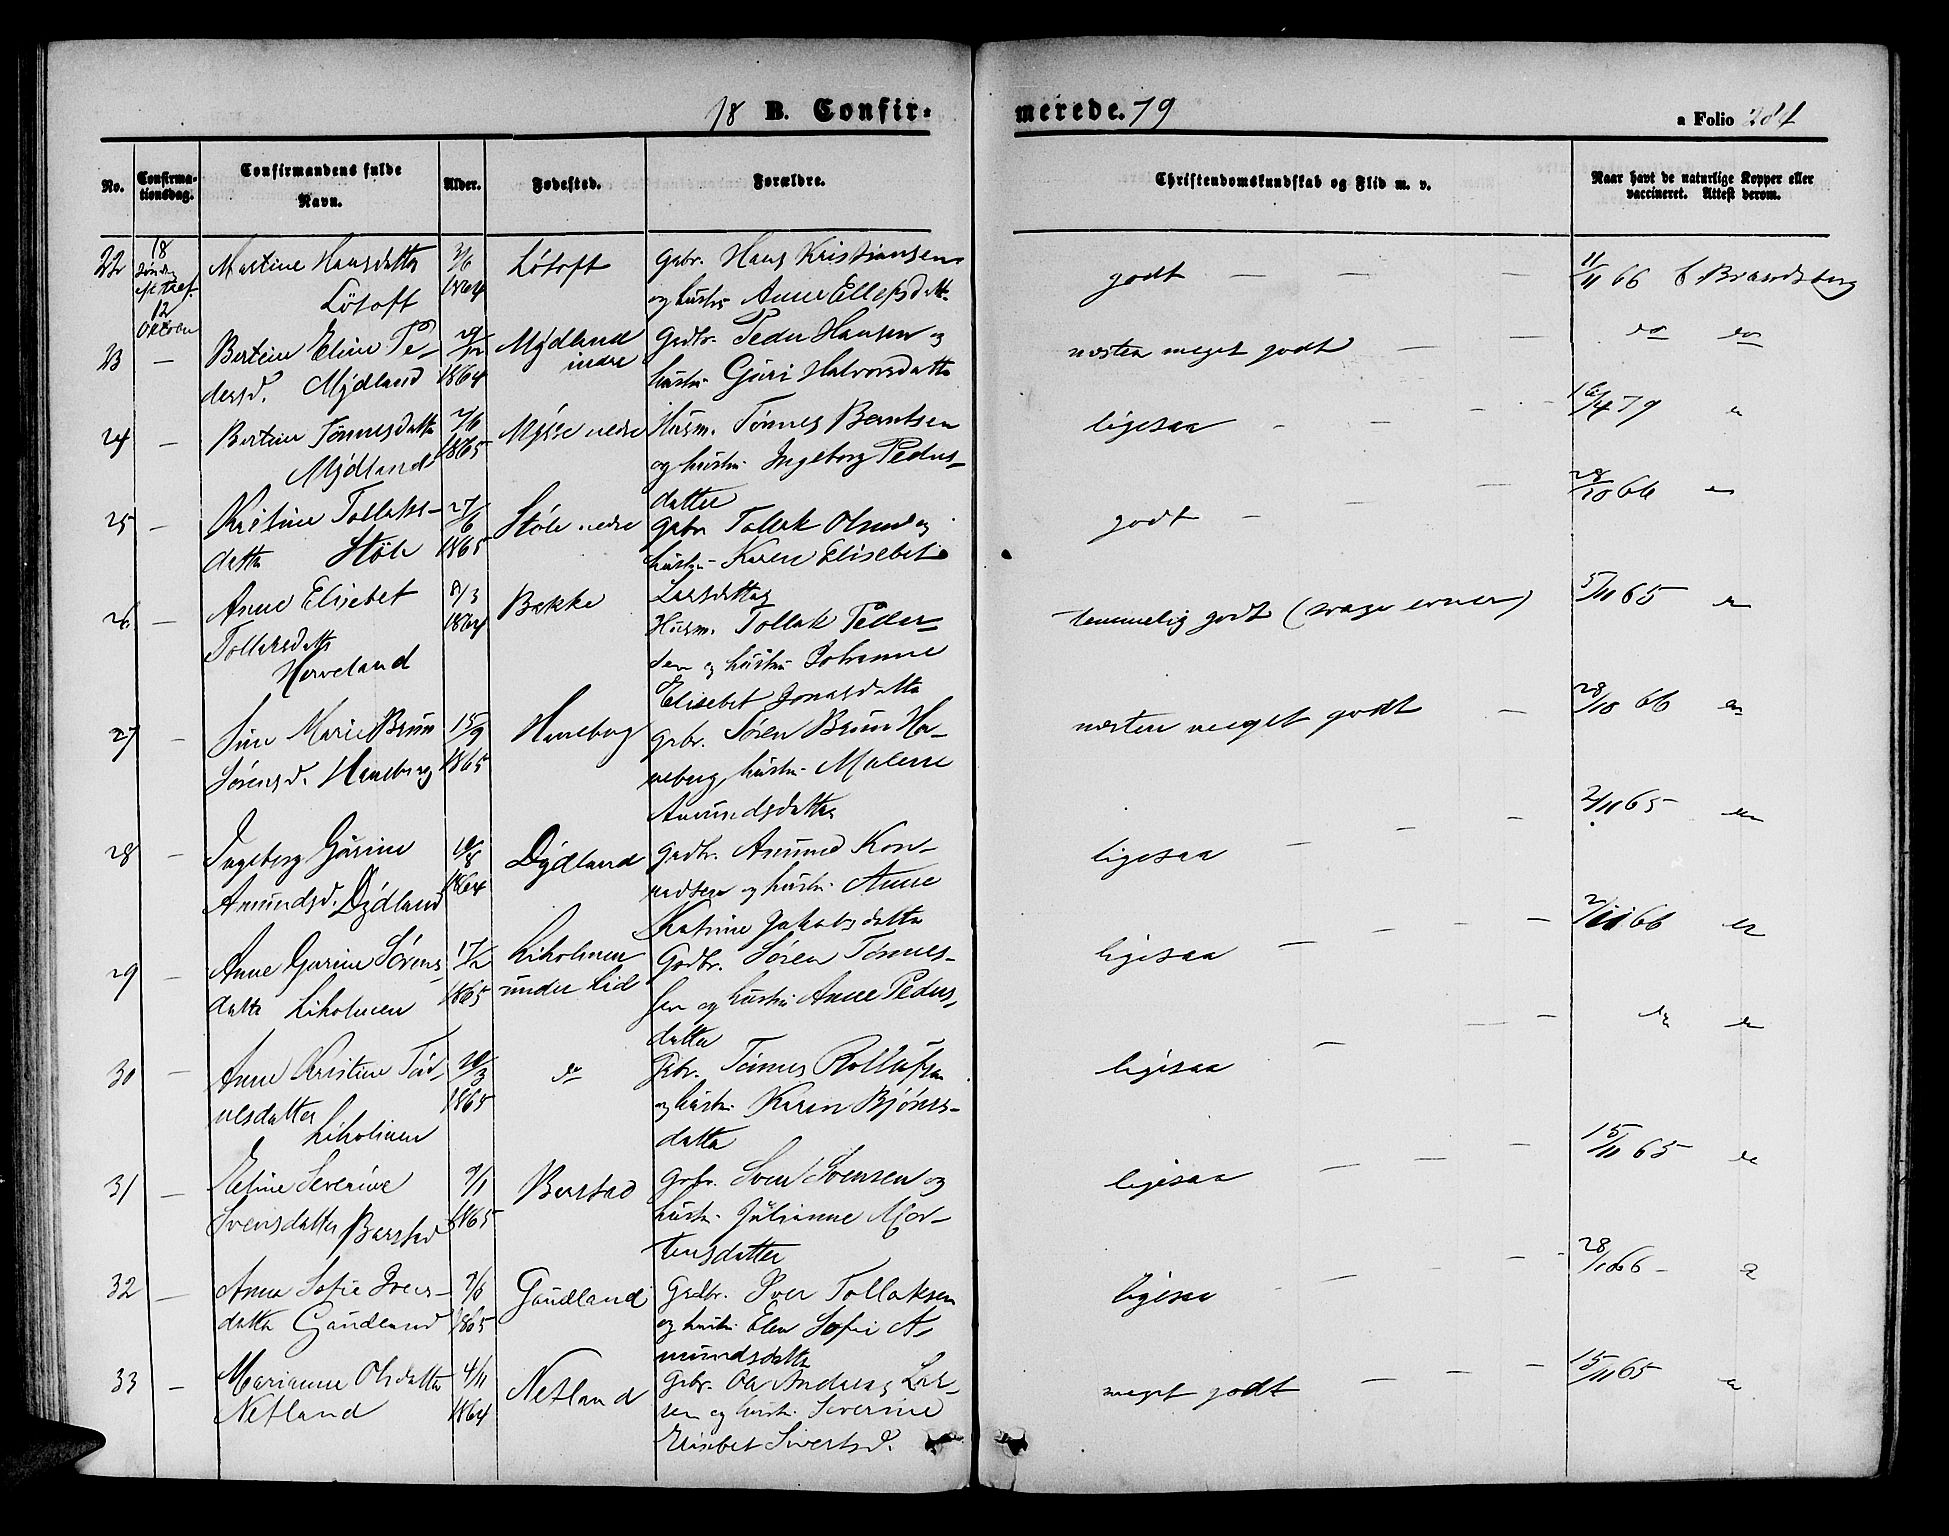 18 B. Confir-
merede. 79
a Folio 284
No.
Confirma-
tionsdag.
Confirmandens fulde
Navn.
Alder.
Fødested.
Forældre.
Christendomskundskab og Flid m. v.
Naar havt de naturlige Kopper eller
vaccineret. Attest derom.
22
18
12
Oktober
Martine Hansdatter
Løtoft
1864
Løtoft
Gbr. Hans Kristiansen
og hustr. Anne Ellefsdatt.
godt — — —
11/11 66 C Brandsberg
23 —
Bertine Eline Pe-
dersd. Mydland
1864
Mydland
indre
Gadbr. Peder Hansen og
hustr. Guri Halvorsdatter
næsten meget godt — —
do do
24 —
Bertine Tønnesdatter
Mydland
7/6
1865
Mysse nedre
Husm. Tønnes Berntsen
og hustr. Ingeborg Peders-
datter
ligesaa - - - -
16/4 79 do
25 —
Kristine Tollaks-
datter Støle
27/6
1865
Støle nedre
Gbr. Tollak Olsen og
hustr. Karen Elisebet
Larsdatter
godt — — —
28/10 66 do
26 —
Anne Elisebet
Tollaksdatter
Herveland
8/3
1864
Bakke
Husm. Tollak Peder-
sen og hustr. Johanne
Elisebet Jonasdatter
temmelig godt (svage evner)
5/11 65 do
27 —
Sine Marie Brun
Sørensd. Haneberg
15/9
1865
Haneberg
Gbr. Søren Brun Ha-
neberg, hustr. Malene
Amundsdatter
næsten meget godt —
28/10 66 do
28 —
Ingeborg Gurine
Amundsd. Dydland
10/8
1864
Dydland
Gadbr. Amund Kon-
radsen og hustr. Anne
Katrine Jakobsdatter
ligesaa — — —
2/11 65 do
29 —
Anne Gurine Sørens-
datter Liholmen
17/2
1865
Liholmen
under Lid
Gadbr. Søren Tønnes-
sen og hustr. Anne Peders-
datter
ligesaa — — — —
2/11 66 do
30 —
Anne Kristine Tøn-
nesdatter
Liholmen
20/3
1865
do
Gbr. Tønnes Rollufsen
og hustr. Karen Bjørns-
datter
ligesaa — — —
do do
31 —
Eline Severine
Svensdatter Barstad
9/1
1865
Barstad
Gbr. Sven Svensen og
hustr. Julianne Mor-
tensdatter
ligesaa — — —
15/11 65 do
32 —
Anna Sofie Ivers-
datter Gaudland
7/6
1865
Gaudland
Gadbr. Iver Tollaksen
og hustr. Elen Sofie A-
mundsdatter
ligesaa — — — -
28/10 66 do
33 —
Marianne Olsdatter
Netland
4/11
1864
Netland
Gbr. Ole Andreas Lar-
sen og hustr. Severine
Elisebet Sivertsd.
meget godt — — —
15/11 65 do